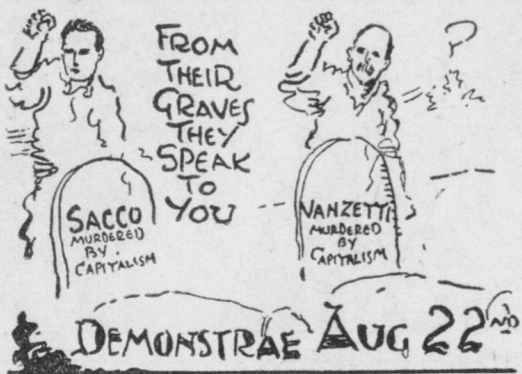 FROM
THEIR
GRAVES
THEY
SPEAK
TO
YOU
SACCO
MURDERED
BY
CAPITALISM
VANZETTI
MURDERED
BY
CAPITALISM
?
DEMONSTRAE AUG 22ND